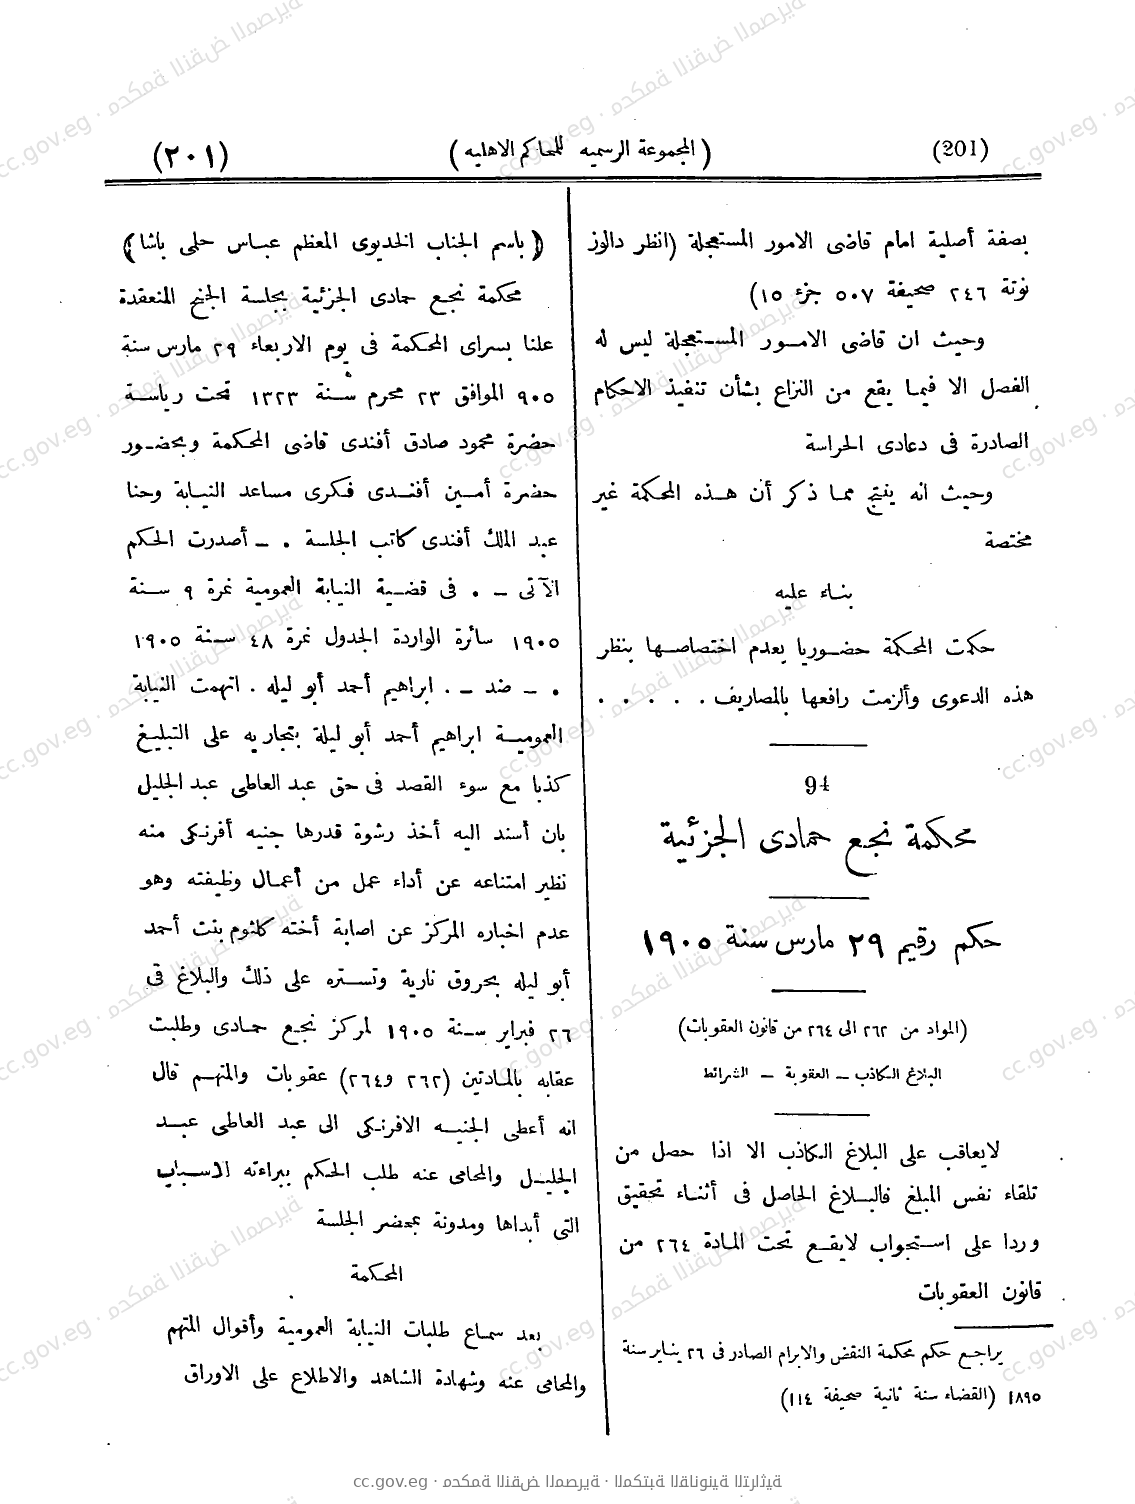 (201)
(المجموعة الرسميه للمحاكم الاهليه)
(٢٠١)
بصفة أصلية امام قاضى الامور المستعجلة (انظر دالوز
نوتة ٢٤٦ صحيفة ٥٠٧ جزء ١٥)
وحيث ان قاضى الامور المستعجلة ليس له
الفصل الا فيما يقع من النزاع بشأن تنفيذ الاحكام
الصادرة فى دعادى الحراسة
وحيث انه ينتج مما ذكر أن هذه المحكمة غير
مختصة
بناء عليه
حكمت المحكمة حضوريا بعدم اختصاصها بنظر
هذه الدعوى وألزمت رافعها بالمصاريف . . . . .
94
محكمة نجع حمادى الجزئية
حكم رقيم ٢٩ مارس سنة ١٩٠٥
(المواد من ٢٦٢ الى ٢٦٤ من قانون العقوبات)
البلاغ الكاذب – العقوبة – الشرائط
لايعاقب على البلاغ الكاذب الا اذا حصل من
تلقاء نفس المبلغ فالبلاغ الحاصل فى أثناء تحقيق
وردا على استجواب لايقع تحت المادة ٢٦٤ من
قانون العقوبات
يراجع حكم محكمة النقض والابرام الصادر فى ٢٦ يناير سنة
١٨٩٥ (القضاء سنة ثانية صحيفة ١١٤)
(باسم الجناب الخديوى المعظم عباس حلمى باشا)
محكمة نجع حمادى الجزئية بجلسة الجنح المنعقدة
علنا بسراى المحكمة فى يوم الاربعاء ٢٩ مارس سنة
٩٠٥ الموافق ٢٣ محرم سنة ١٣٢٣ تحت رياسة
حضرة محمود صادق أفندى قاضى المحكمة وبحضور
حضرة أمين أفندى فكرى مساعد النيابة وحنا
عبد الملك أفندى كاتب الجلسة . – أصدرت الحكم
الآتى – . فى قضية النيابة العمومية نمرة ٩ سنة
١٩٠٥ سائرة الواردة الجدول نمرة ٤٨ سنة ١٩٠٥
. – ضد – . ابراهيم أحمد أبو ليله . اتهمت النيابة
العمومية ابراهيم أحمد أبو ليلة بتجاريه على التبليغ
كذبا مع سوء القصد فى حق عبد العاطى عبد الجليل
بان أسند اليه أخذ رشوة قدرها جنيه أفرنكى منه
نظير امتناعه عن أداء عمل من أعمال وظيفته وهو
عدم اخباره المركز عن اصابة أخته كلثوم بنت أحمد
أبو ليله بحروق نارية وتستره على ذلك والبلاغ فى
٢٦ فبراير سنة ١٩٠٥ لمركز نجع حمادى وطلبت
عقابه بالمادتين (٢٦٢ و٢٦٤) عقوبات والمتهم قال
انه أعطى الجنيه الافرنكى الى عبد العاطى عبد
الجليل والمحامى عنه طلب الحكم ببراءته الاسباب
التى أبداها ومدونة بمحضر الجلسة
المحكمة
بعد سماع طلبات النيابة العمومية وأقوال المتهم
والمحامى عنه وشهادة الشاهد والاطلاع على الاوراق
cc.gov.eg · محكمة النقض المصرية · المكتبة القانونية التراثية